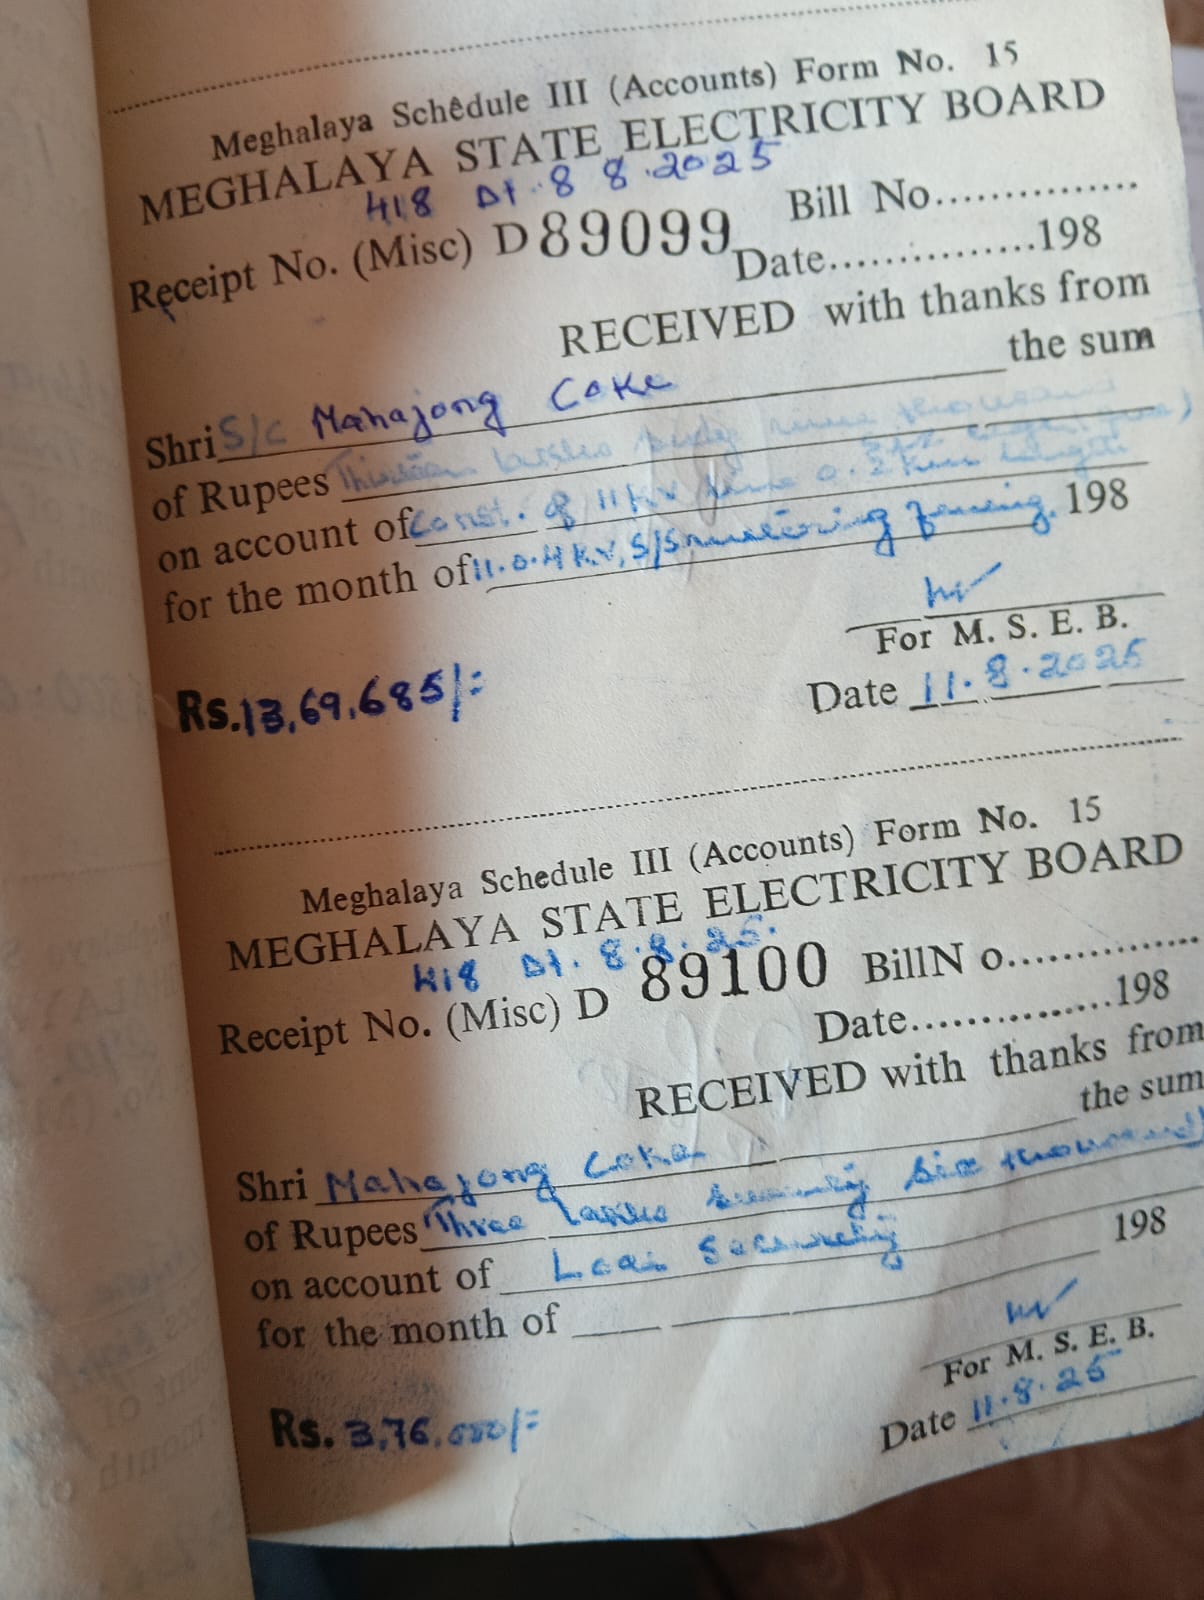 Meghalaya Schedule III (Accounts) Form No. 15
MEGHALAYA STATE ELECTRICITY BOARD
418 Dt. 8 8.2025
Receipt No. (Misc) D 89099 Bill No...............
Date................198
RECEIVED with thanks from
Shri S/C Mahajong Coke the sum
of Rupees Thirteen lakhs sixty nine thousand
on account of Const. of 11 KV line 0. Km length
for the month of 11.0.4 K.V, S/S metering fencing. 198
For M. S. E. B.
Rs. 13,69,685/=
Date 11.8.2025
Meghalaya Schedule III (Accounts) Form No. 15
MEGHALAYA STATE ELECTRICITY BOARD
418 Dt. 8.8.25.
Receipt No. (Misc) D 89100 BillN o..............
Date................198
RECEIVED with thanks from
the sum
Shri Mahajong Coke
of Rupees Three lakhs seventy six thousand
on account of Load Security
for the month of 198
For M. S. E. B.
Rs. 3,76,000/=
Date 11.8.25